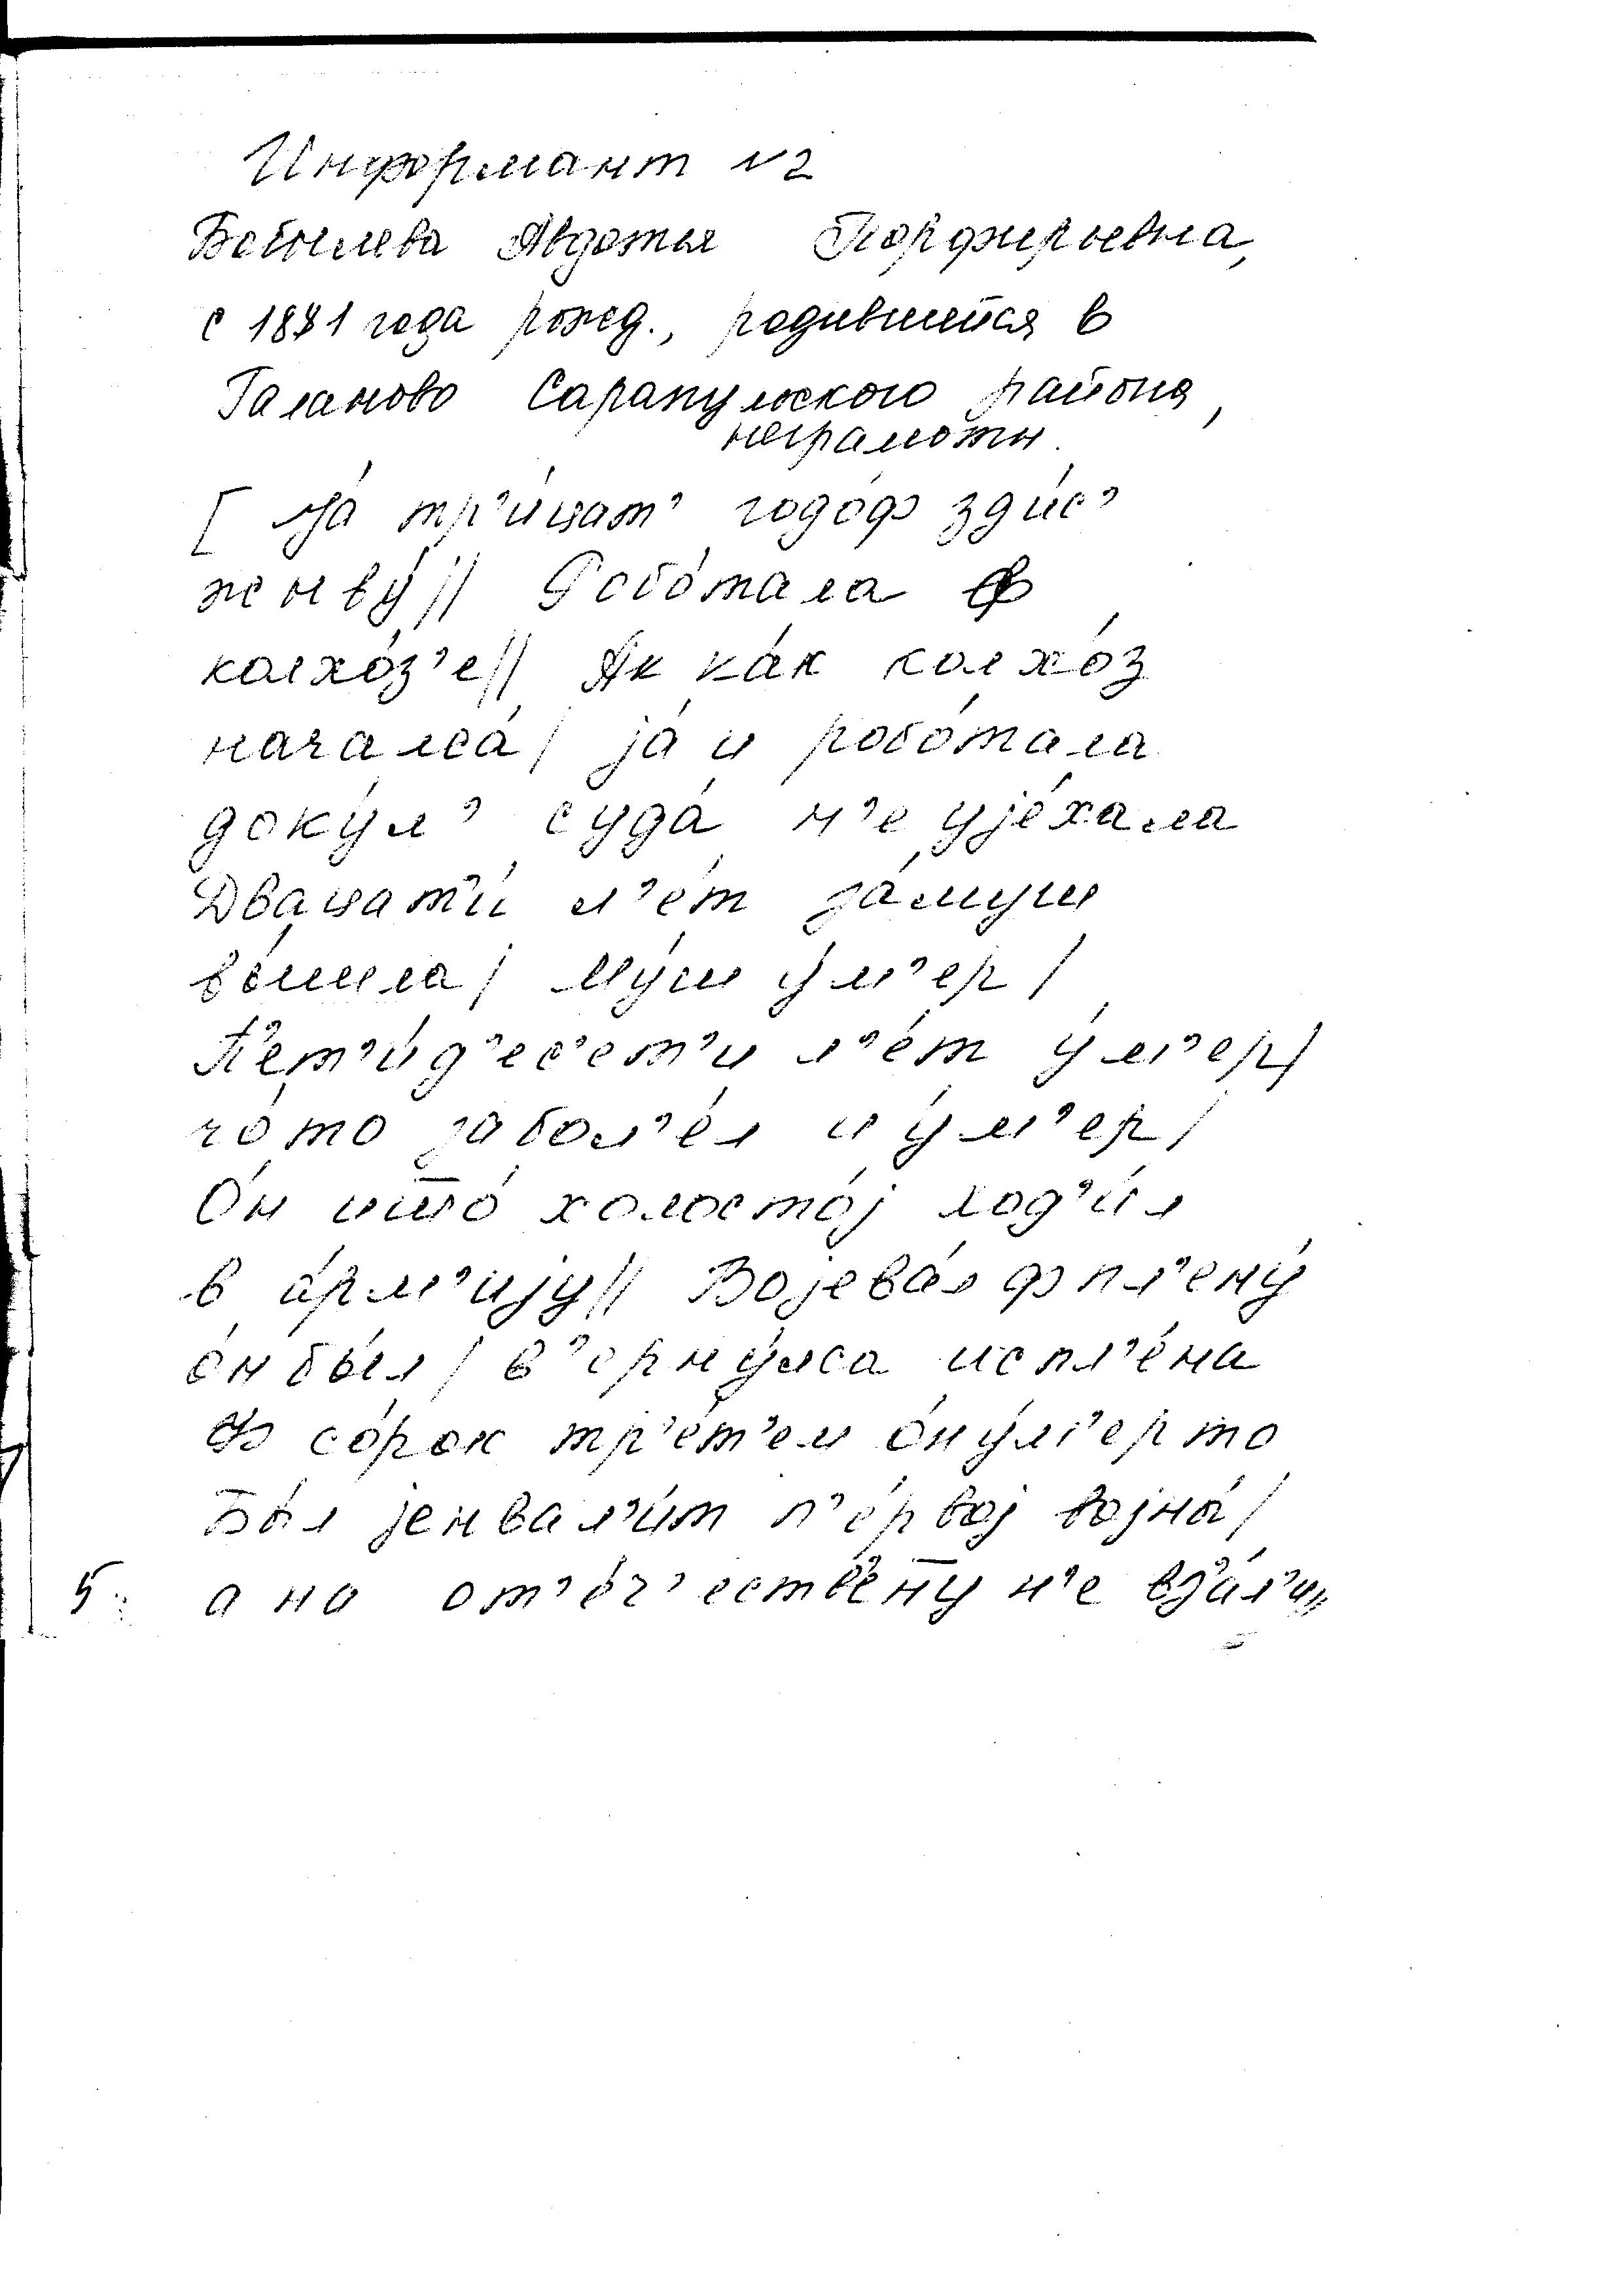 Информант N2
Бобылева Авдотья Порфирьевна,
с 1881 года рожд., родившейся в
Галаново Сарапульского района,
неграмотн.
[ Jа́ тр'и́цат' годо́ф зди́с'
живу́ // Робо́тала ф
колхо́з'е // Ак ка́к колхо́з
началса́ / jа́ и робо́тала
доку́л' суда́ н'е уjе́хала
Двацат'и́ л'е́т за́муш
вы́шла / Му́ш у́м'ер /
П'ет'и́д'ес'ет'и л'е́т у́м'ер /
чо́то забол'е́л и у́м'ер /
О́н ишо́ холосто́j ход'и́л
в а́рм'иjу // Воjева́л ф пл'ену́
о́н бы́л / в'ерну́лса испл'е́на
Ф со́рок тр'е́т'ем о́н у́м'ер то
Бы́л jенвал'и́т п'е́рвоj воjны́ /
5. а на от'е́ч'еств'ену н'е вз'а́л'и //